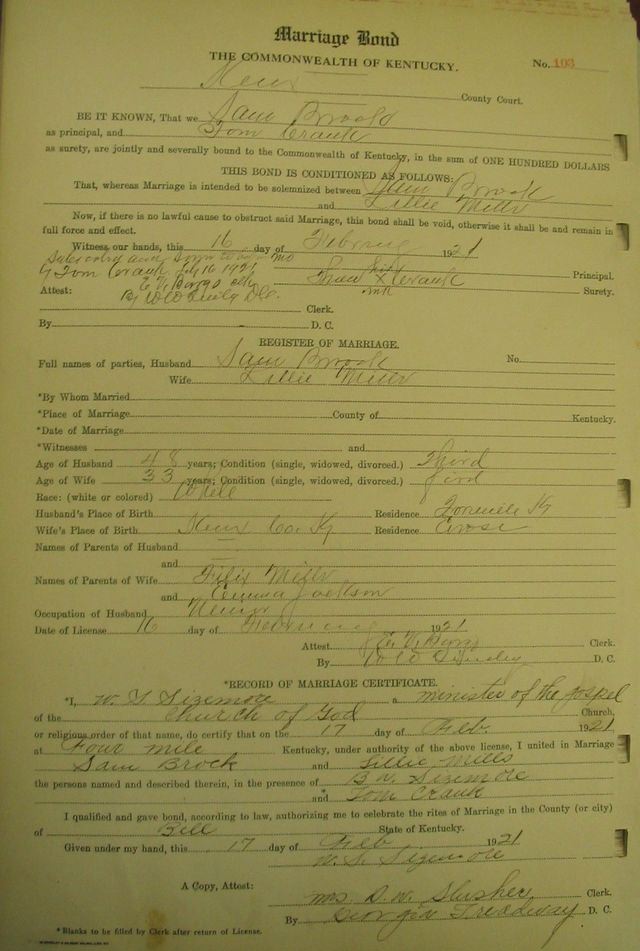 Marriage Bond
THE COMMONWEALTH OF KENTUCKY.
No. 103
County Court.
BE IT KNOWN, That we Sam Brock
as principal, and Tom Crank
as surety, are jointly and severally bound to the Commonwealth of Kentucky, in the sum of ONE HUNDRED DOLLARS
THIS BOND IS CONDITIONED AS FOLLOWS:
That, whereas Marriage is intended to be solemnized between Sam Brock
and Lillie Mills
Now, if there is no lawful cause to obstruct said Marriage, this bond shall be void, otherwise it shall be and remain in
full force and effect.
Witness our hands, this 16 day of February 1921
Principal.
by Tom Crank Feb 16 1921
Tom X Crank Surety.
Attest:
Clerk.
By D. C.
REGISTER OF MARRIAGE.
Full names of parties, Husband Sam Brock No.
Wife Lillie Mills
*By Whom Married
*Place of Marriage County of Kentucky.
*Date of Marriage
*Witnesses and
Age of Husband 48 years; Condition (single, widowed, divorced.) Third
Age of Wife 33 years; Condition (single, widowed, divorced.)
Race: (white or colored) White
Husband's Place of Birth Residence Ky
Wife's Place of Birth Knox Co. Ky Residence
Names of Parents of Husband
and
Names of Parents of Wife Filix Mills
and Emma Jackson
Occupation of Husband Miner
Date of License 16 day of February 1921
Attest. Clerk.
By D. C.
*RECORD OF MARRIAGE CERTIFICATE.
*I, W. T. Sizemore a minister of the gospel
of the Church of God Church,
or religious order of that name, do certify that on the 17 day of Feb. 1921
at Four mile Kentucky, under authority of the above license, I united in Marriage
Sam Brock and Lillie Mills
the persons named and described therein, in the presence of B. W. Sizemore
and Tom Crank
I qualified and gave bond, according to law, authorizing me to celebrate the rites of Marriage in the County (or city)
of Bell State of Kentucky.
Given under my hand, this 17 day of Feb 1921
W. S. Sizemore
A Copy, Attest:
Mrs. D. W. Slusher Clerk.
By Georgia Treadway D. C.
*Blanks to be filled by Clerk after return of License.